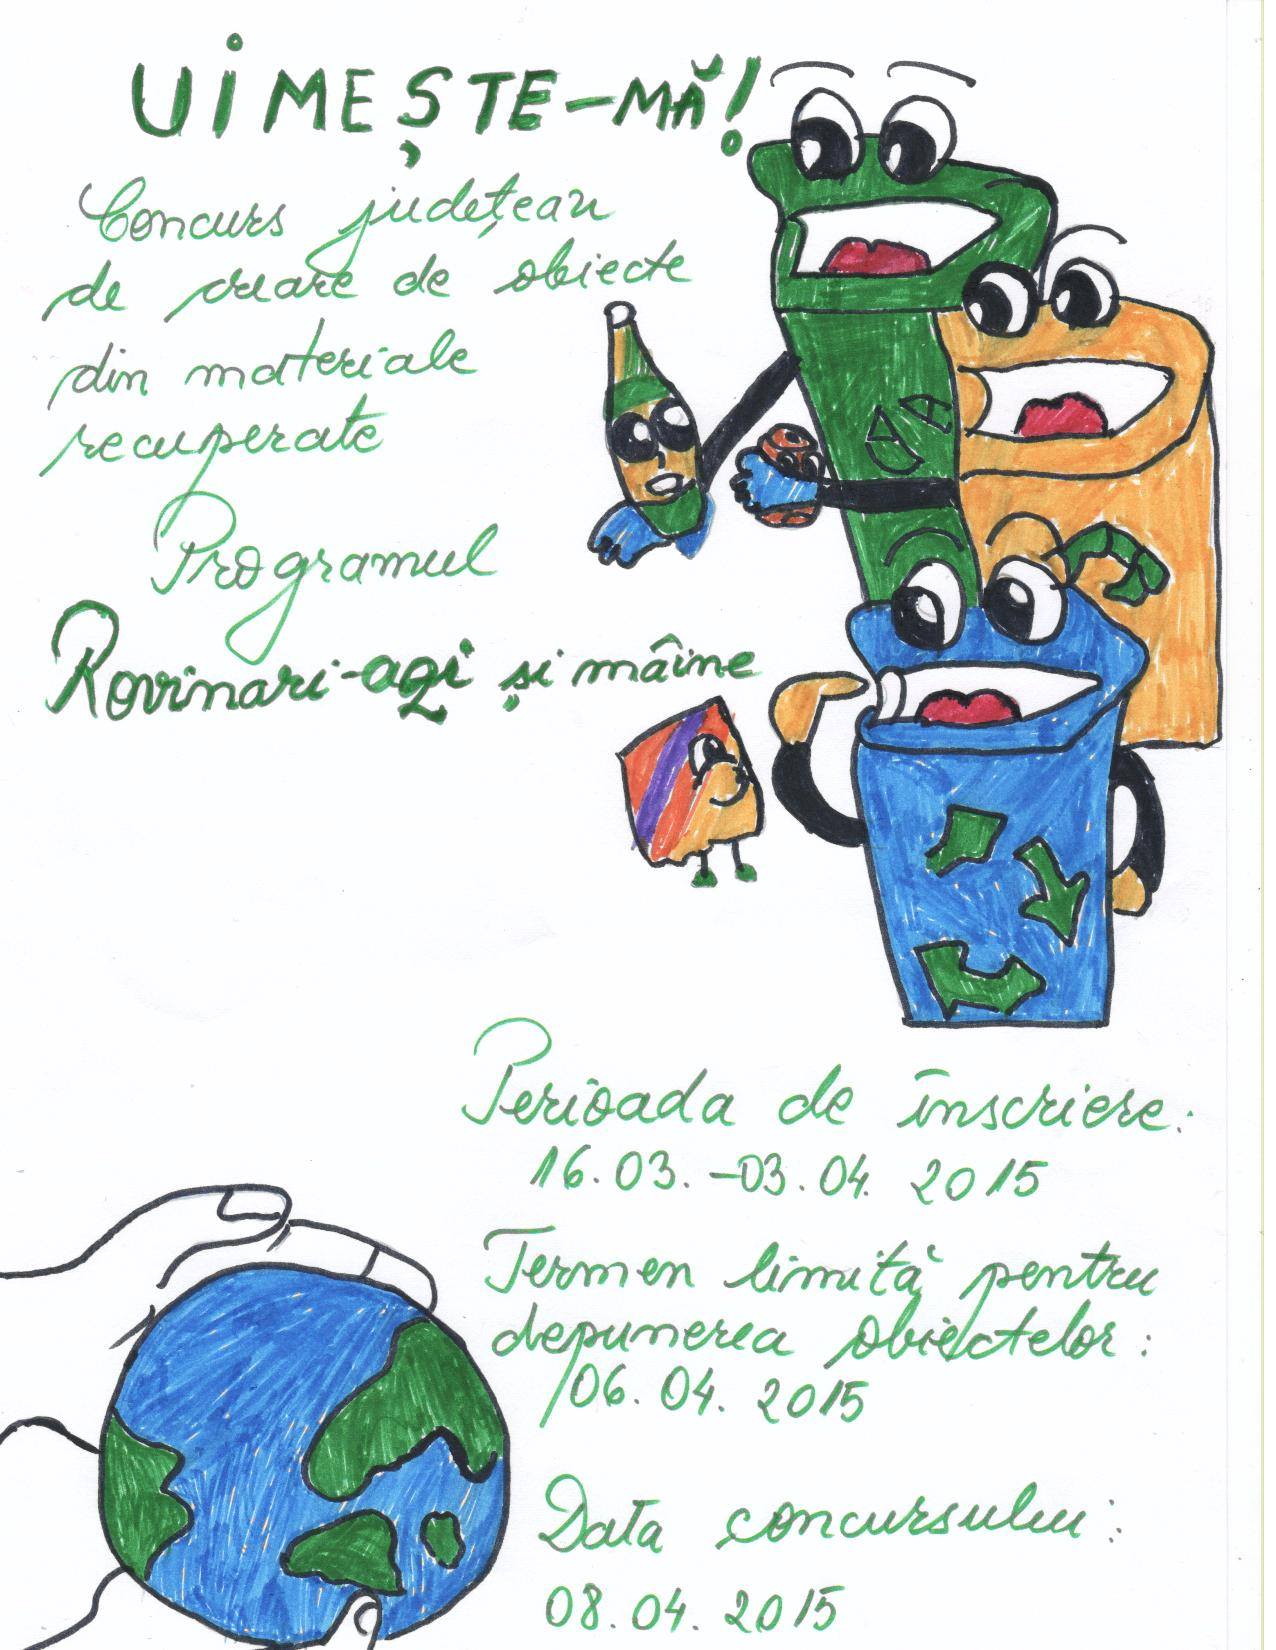 UiMEȘTE-MĂ!
Concurs județean
de creare de obiecte
din materiale
recuperate
Programul
Rovinari-azi și mâine
Perioada de înscriere:
16.03.-03.04. 2015
Termen limită pentru
depunerea obiectelor:
06.04. 2015
Data concursului:
08.04. 2015